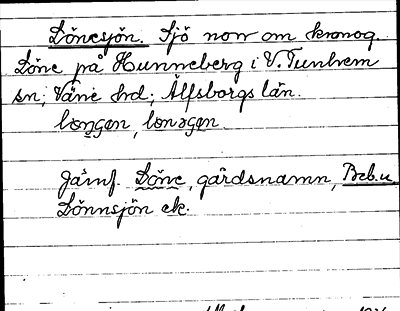 Lönesjön. Sjö norr om kronog.
Löne på Hunneberg i V. Tunhem
sn; Väne hd; Älfsborgs län.
Jämf. Löne, gårdsnamn, Beb.u.
Lönnsjön ek.